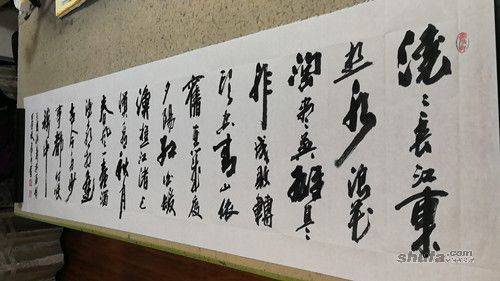 滚滚長江東
逝水浪花
淘尽英雄是
非成敗轉
頭空青山依
舊在幾度
夕陽红白髮
漁樵江渚上
慣看秋月
春风一壶濁
酒喜相逢
古今多少
事都付笑
談中
shufa.com